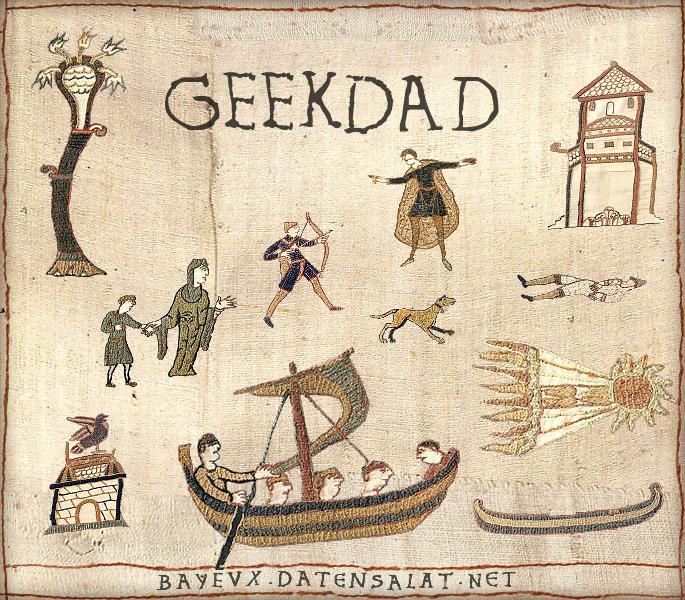 GEEKDAD
BAYEVX.DATENSALAT.NET